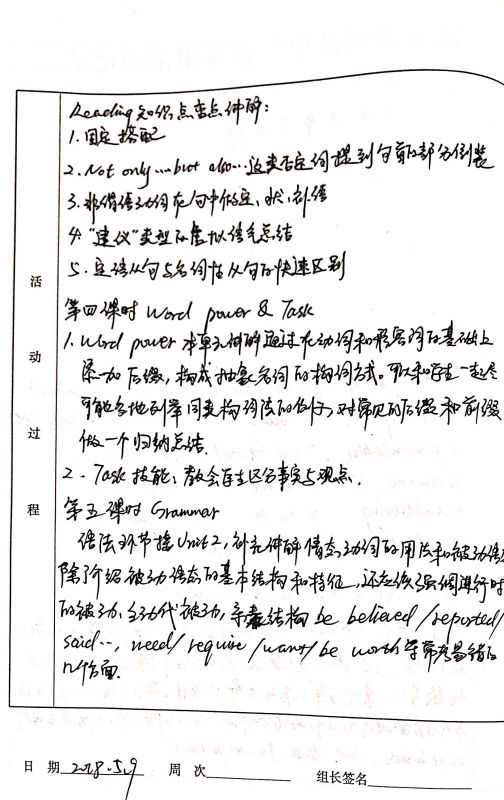 Reading知识点重点讲解:
1.固定搭配
2.Not only...but also...这类否定词提到句首的部分倒装
3.非谓语动词在句中做定、状、补语
4."建议"类型的虚拟语气总结
5.定语从句与名词性从句的快速区别
第四课时 Word power & Task
1.Word power 本单元讲解通过在动词和形容词的基础上
添加后缀,构成抽象名词的构词方式。可以和学生一起尽
可能多地列举同类构词法的例子,对常见的后缀和前缀
做一个归纳总结.
2.Task 技能:教会学生区分事实与观点.
第五课时 Grammar
语法环节接Unit2,补充讲解情态动词的用法和被动语态
除了介绍被动语态的基本结构和特征,还应该强调进行时
的被动、主动代被动,结构 be believed/reported/
said..,need/require/want/be worth等常考易错的
几个方面.
活动过程
日 期 2018.5.9 周 次 组长签名